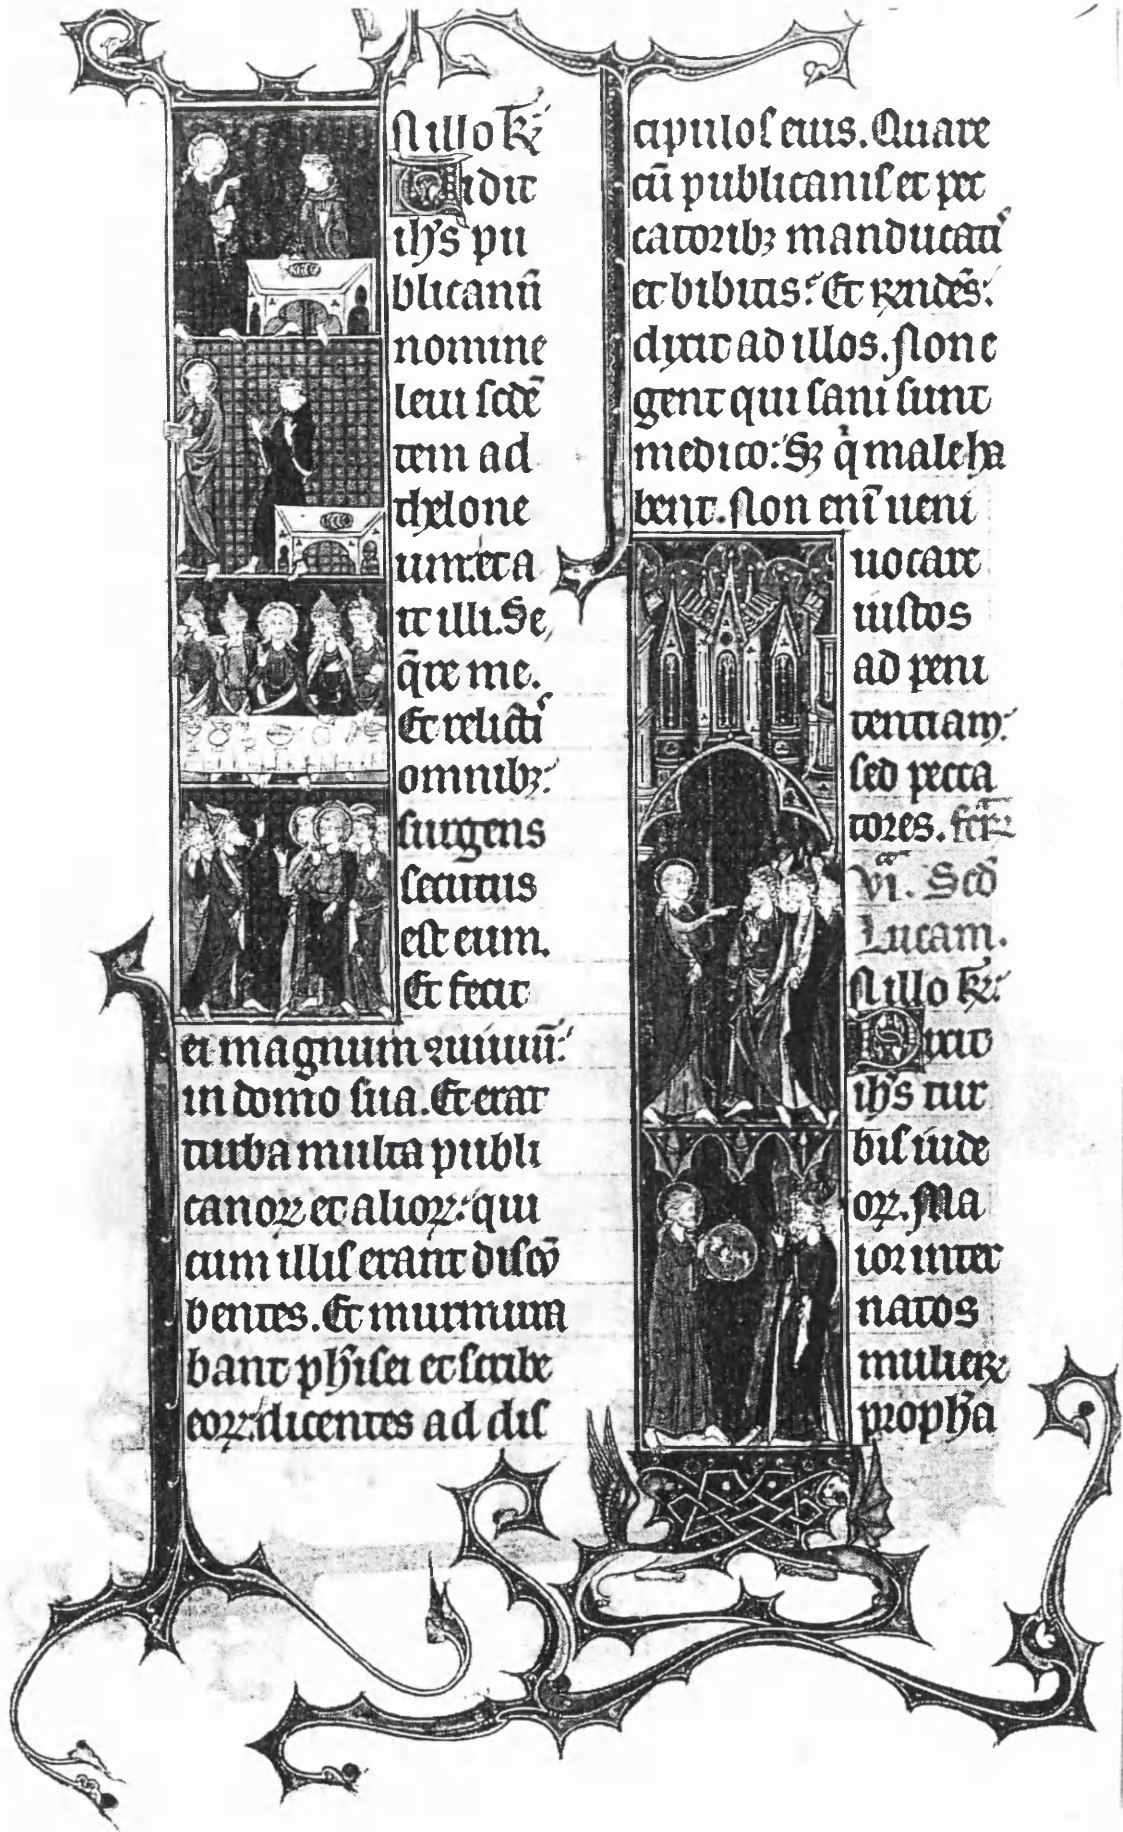 N illo t̄r̄
Vidit
ih̄s pu
blicanū
nomine
leui sedē
tem ad
thelone
um: et a
it illi. Se
q̄re me.
Et relicti
omnibꝫ:
surgens
secutus
est eum.
Et fecit
ei magnum ꝯuiuiū:
in domo sua. Et erat
turba multa publi
canoꝝ et alioꝝ: qui
cum illis erant discū
bentes. Et murmura
bant ph̄isei et scribe
eoꝝ: dicentes ad dis
cipulos eius. Quare
cū publicanis et pec
catoribꝫ manducatis
et bibitis? Et r̄ndēs:
dixit ad illos. Non e
gent qui sani sunt
medico: Sꝫ q̇ male ha
bent. Non eni̅ ueni
uocare
iustos
ad peni
tentiam:
sed pecca
tores. fer̄
vi. Secd̄
Lucam.
N illo t̄r̄:
Dixit
ih̄s tur
bis iude
oꝝ. Ma
ior inter
natos
mulieꝝ
proph̄a